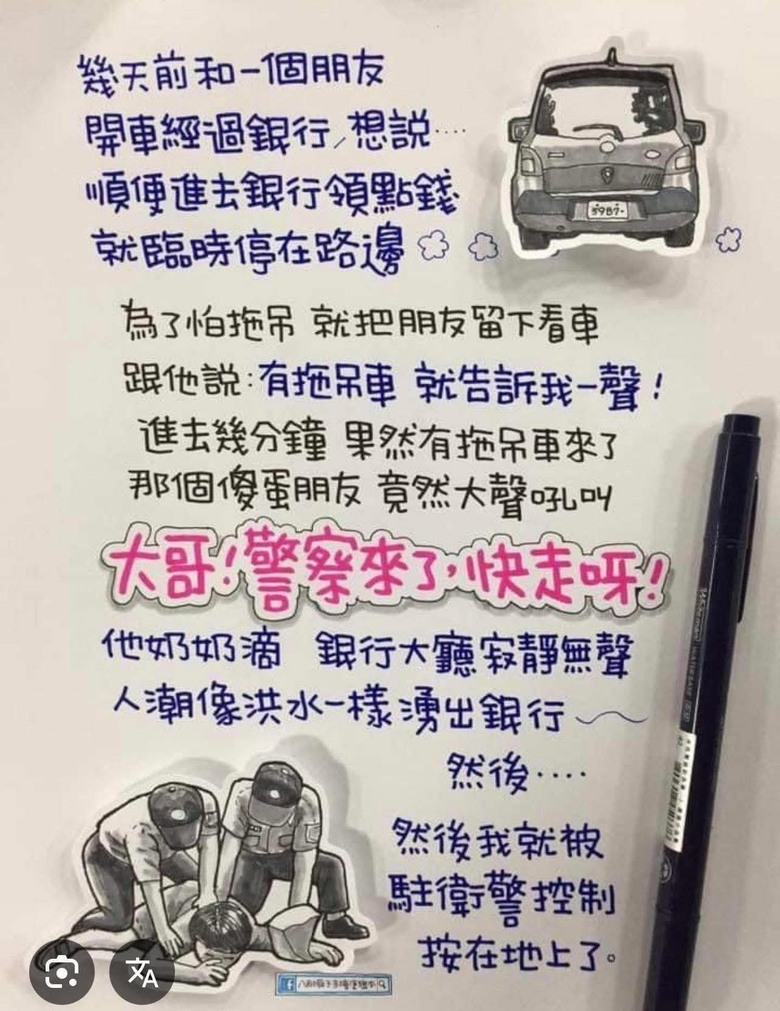 幾天前和一個朋友
開車經過銀行,想說····
順便進去銀行領點錢
就臨時停在路邊
3987-
為了怕拖吊 就把朋友留下看車
跟他說:有拖吊車 就告訴我一聲!
進去幾分鐘 果然有拖吊車來了
那個傻蛋朋友 竟然大聲吼叫
大哥!警察來了,快走呀!
他奶奶滴 銀行大廳寂靜無聲
人潮像洪水一樣湧出銀行
然後····
然後我就被
駐衛警控制
按在地上了。